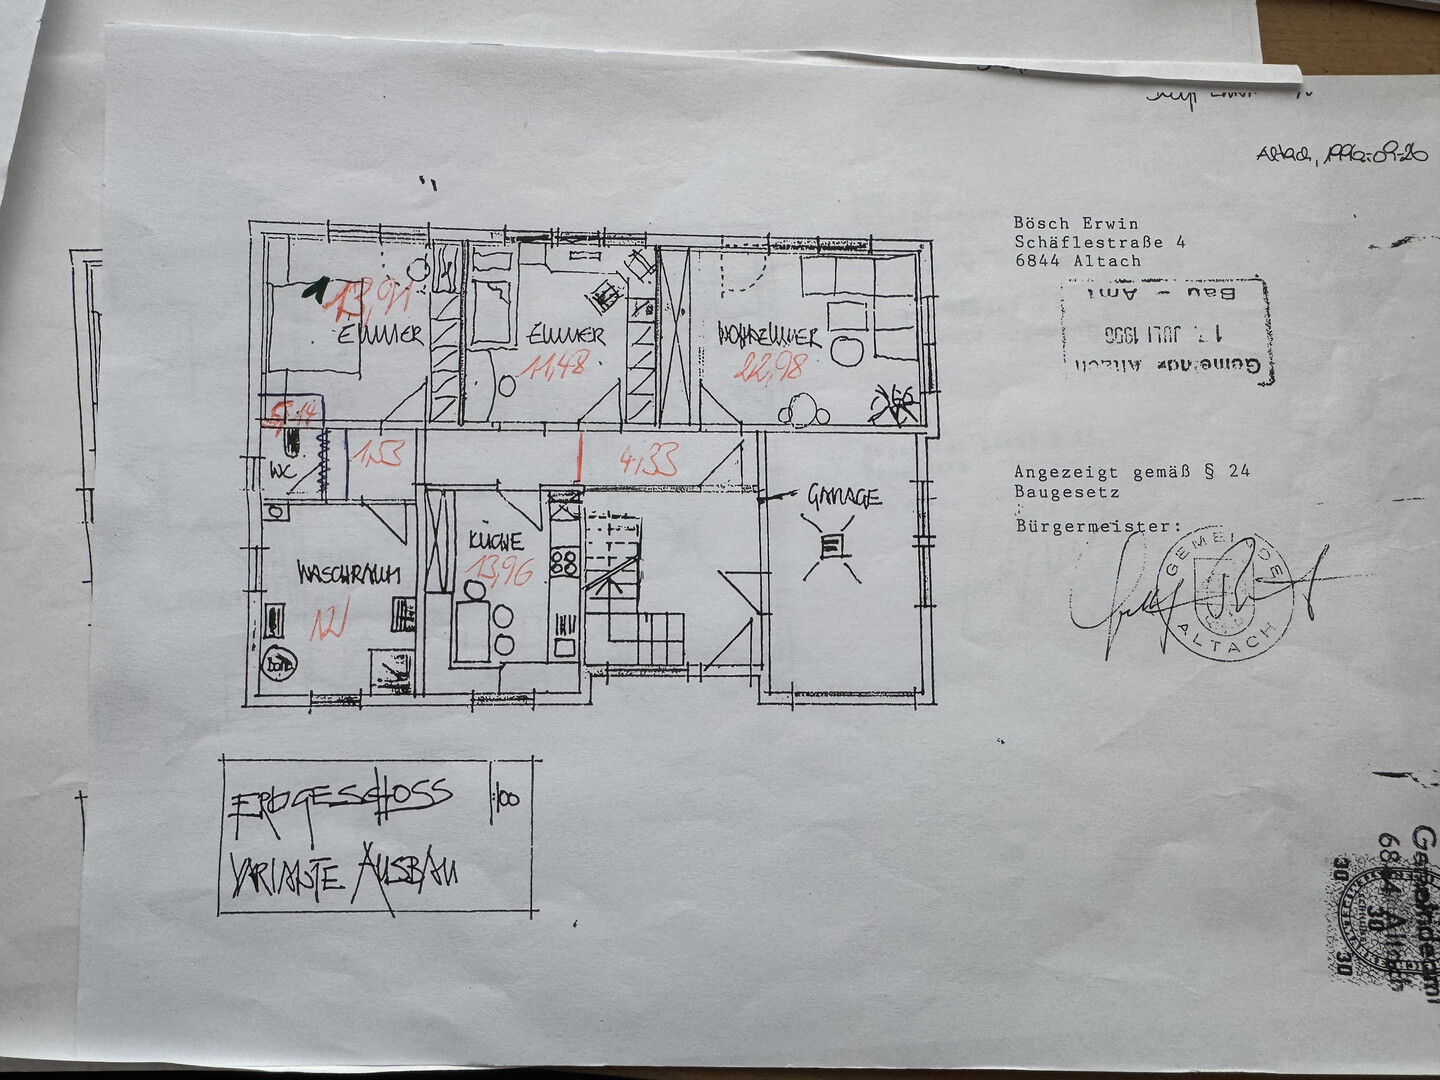 Altach, 1996-09-26
Bösch Erwin
Schäflestraße 4
6844 Altach
Bau - Amt
17. JULI 1996
Gemeinde Altach
13,91
ZIMMER
ZIMMER
11,48
WOHNZIMMER
22,98
5,14
WC
1,53
4,33
GARAGE
KÜCHE
13,96
WASCHRAUM
12
Angezeigt gemäß § 24
Baugesetz
Bürgermeister:
GEMEINDE
ALTACH
ERDGESCHOSS
1:100
VARIANTE AUSBAU
Gemeindeamt
6844 Altach
30
30
30